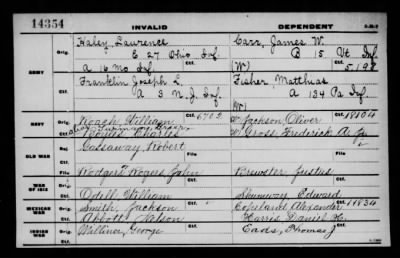 14354
INVALID
DEPENDENT
Haley, Laurence
Carr, James W.
Orig.
E 27 Ohio Inf
B 15 Vt Inf
ARMY
Ctf.
A 16 Mo Inf
(W)
Ctf.
5198
Franklin Joseph L.
Fisher, Matthias
Orig.
A 3 N.J. Inf.
A 134 Pa Inf
Ctf.
(W)
Ctf.
NAVY
Orig.
Roach, William
Ctf.
6702
Jackson, Oliver
18104
Charles
Gross, Frederick A. Jr
OLD WAR
Inv.
Gassaway, Robert
File
File
WAR OF 1812
Rodgers Rogers, John
Brewster, Justus
Odell, William
Edward
MEXICAN WAR
Orig.
Smith, Jackson
Copeland, Alexander
11834
Ctf.
Abbott, Nelson
Harris, Daniel H.
INDIAN WAR
Orig.
George
Eads, Thomas J
Ctf.